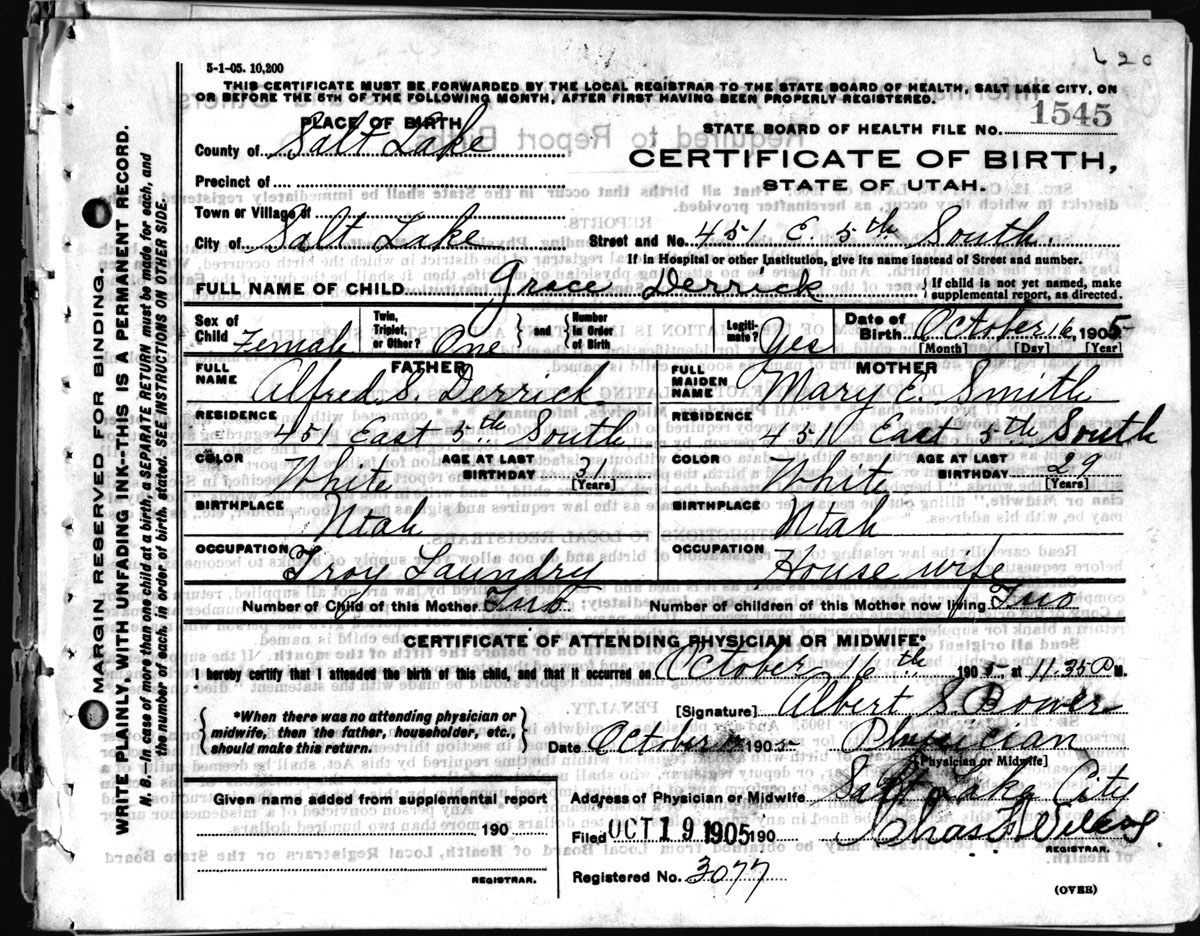 620
5-1-05. 10,200
THIS CERTIFICATE MUST BE FORWARDED BY THE LOCAL REGISTRAR TO THE STATE BOARD OF HEALTH, SALT LAKE CITY, ON
OR BEFORE THE 5TH OF THE FOLLOWING MONTH, AFTER FIRST HAVING BEEN PROPERLY REGISTERED.
PLACE OF BIRTH
STATE BOARD OF HEALTH FILE NO. 1545
County of Salt Lake
CERTIFICATE OF BIRTH,
Precinct of
STATE OF UTAH.
Town or Village of
City of Salt Lake Street and No. 451 E. 5th South.
If in Hospital or other Institution, give its name instead of Street and number.
FULL NAME OF CHILD Grace Derrick { If child is not yet named, make supplemental report, as directed.
Sex of Child Female Twin, Triplet, or Other? One } and { Number in Order of Birth Legiti-mate? Yes Date of Birth October 16, 1905
[Month] [Day] [Year]
FATHER MOTHER
FULL NAME Alfred S. Derrick FULL MAIDEN NAME Mary E. Smith
RESIDENCE 451 East 5th South RESIDENCE 451 East 5th South
COLOR White AGE AT LAST BIRTHDAY 31 [Years] COLOR White AGE AT LAST BIRTHDAY 29 [Years]
BIRTHPLACE Utah BIRTHPLACE Utah
OCCUPATION Troy Laundry OCCUPATION House wife
Number of Child of this Mother Two Number of children of this Mother now living Two
CERTIFICATE OF ATTENDING PHYSICIAN OR MIDWIFE*
I hereby certify that I attended the birth of this child, and that it occurred on October 16th 1905, at 11.35 P M.
[Signature] Albert S. Bower
{ *When there was no attending physician or midwife, then the father, householder, etc., should make this return. }
Date October 1905 Physician
[Physician or Midwife]
Given name added from supplemental report
Address of Physician or Midwife Salt Lake City
190
Filed OCT 19 1905 190 Chas S. Wilcox
REGISTRAR.
Registered No. 3077
REGISTRAR.
(OVER)
MARGIN RESERVED FOR BINDING.
WRITE PLAINLY, WITH UNFADING INK--THIS IS A PERMANENT RECORD.
N. B.--In case of more than one child at a birth, a SEPARATE RETURN must be made for each, and
the number of each, in order of birth, stated. SEE INSTRUCTIONS ON OTHER SIDE.